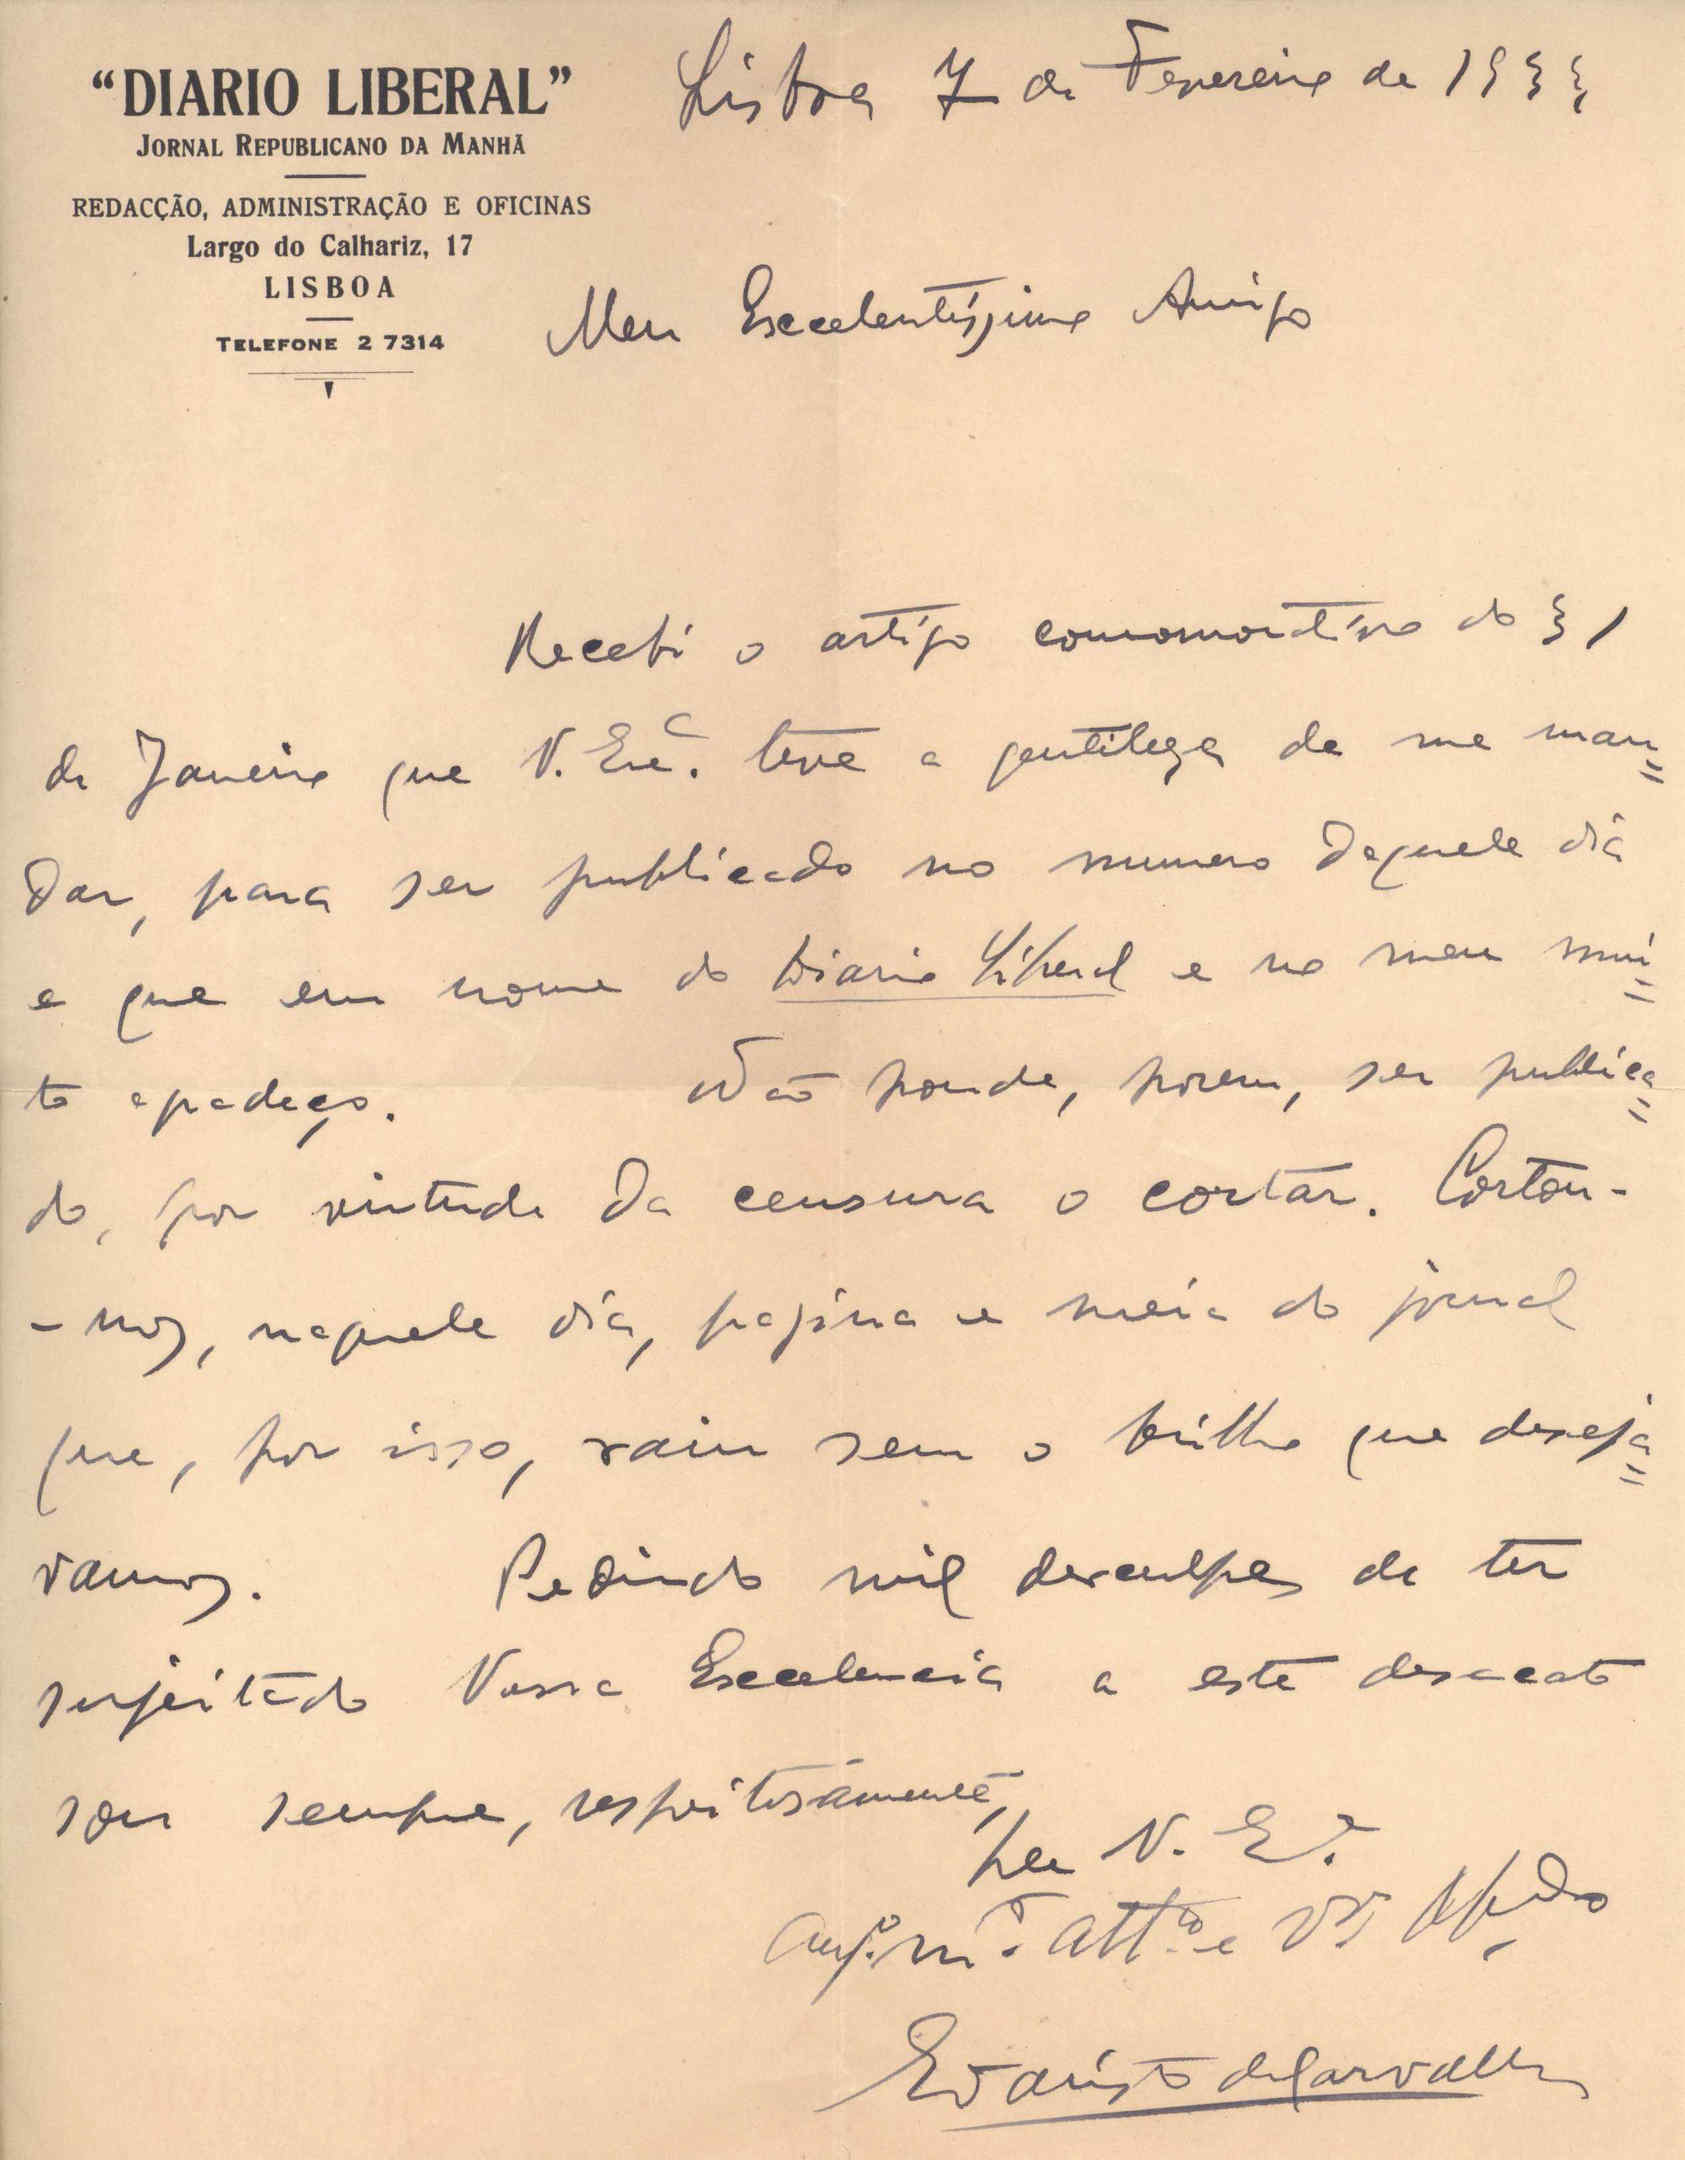 “DIARIO LIBERAL”
JORNAL REPUBLICANO DA MANHÃ
REDACÇÃO, ADMINISTRAÇÃO E OFICINAS
Largo do Calhariz, 17
LISBOA
TELEFONE 2 7314
Lisboa 7 de Fevereiro de 1933
Meu Excelentíssimo Amigo
Recebi o artigo comomorativo do 31
de Janeiro que V. Exc.ª teve a gentileza de me man=
dar, para ser publicado no numero daquele dia
e que em nome do Diario Liberal e no meu mui=
to agradeço. Não poude, porem, ser publica=
do, por virtude da censura o cortar. Cortou-
-nos, naquele dia, pagina e meia do jornal
que, por isso, saiu sem o brilho que deseja=
vamos. Pedindo mil desculpas de ter
sujeitado Vossa Excelencia a este desacato
sou sempre, respeitosamente,
De V. E.ª
Am.º m.to att.to e
Evaristo de Carvalho